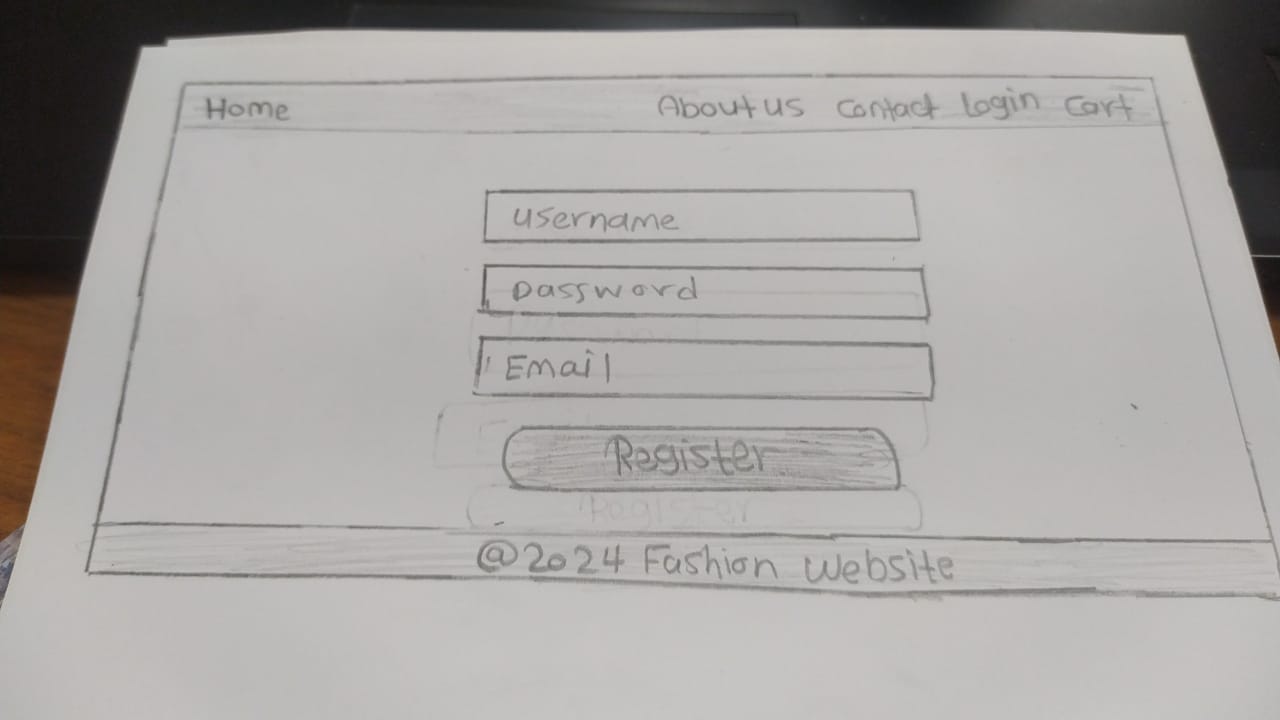 Home About us Contact Login Cart
username
password
Email
Register
Register
@2024 Fashion Website